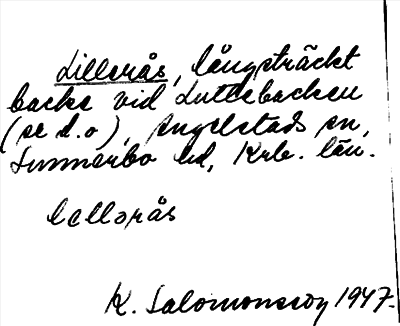 Lillerås, långsträckt
backe vid Luttebacken
(se d.o), Angelstads sn,
Sunnerbo hd, Krb. län.
lellərås
K. Salomonsson 1947.